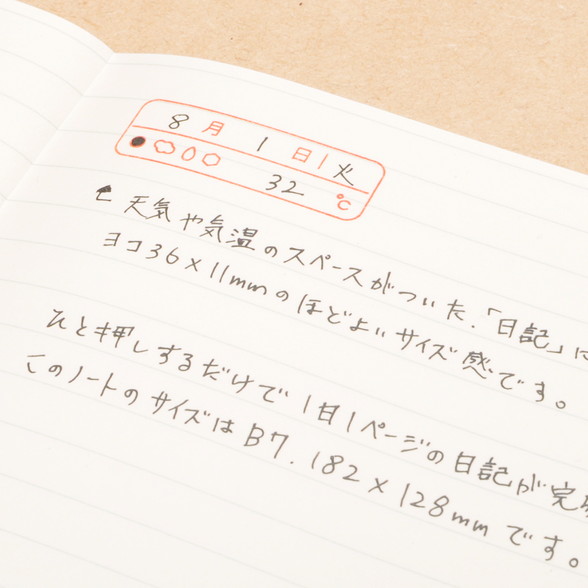 8月1日 火
32 ℃
天気や気温のスペースがついた、「日記」に
ヨコ36×11mmのほどよいサイズ感です。
ひと押しするだけで1日1ページの日記が完
このノートのサイズはB7.182×128mmです。